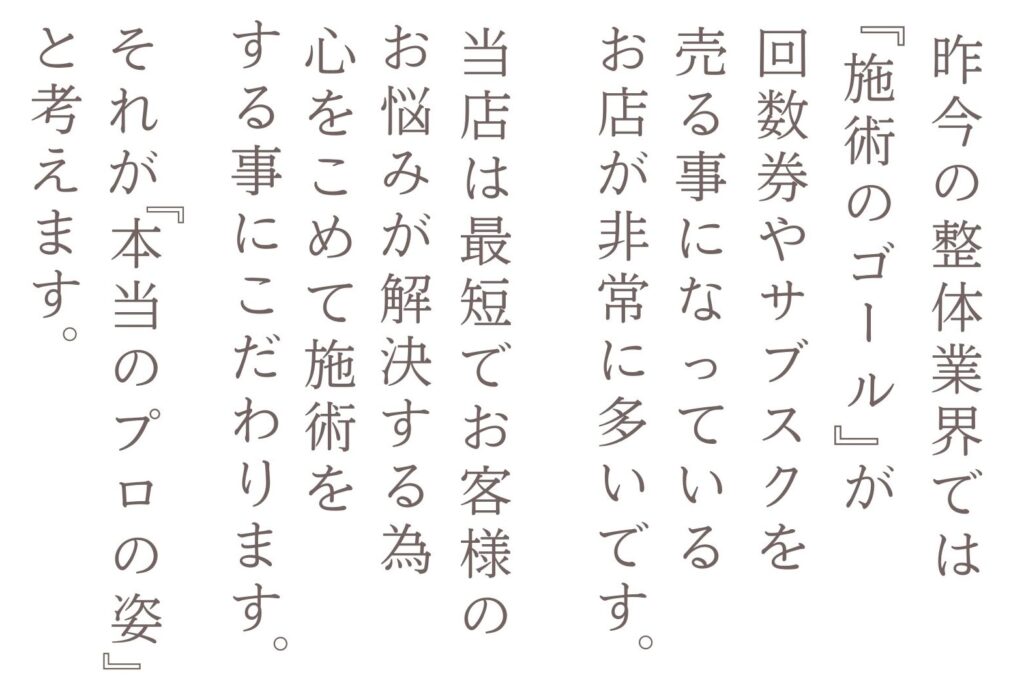 昨今の整体業界では
『施術のゴール』が
回数券やサブスクを
売る事になっている
お店が非常に多いです。
当店は最短でお客様の
お悩みが解決する為
心をこめて施術を
する事にこだわります。
それが『本当のプロの姿』
と考えます。